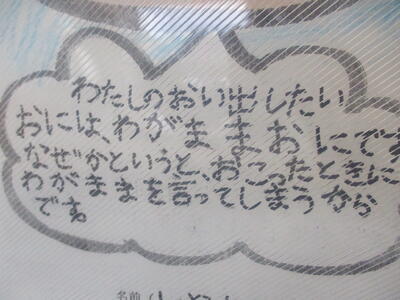 わたしのおい出したい
おには、わがままおにです
なぜかというと、おこったときに
わがままを言ってしまうから
です。
名前